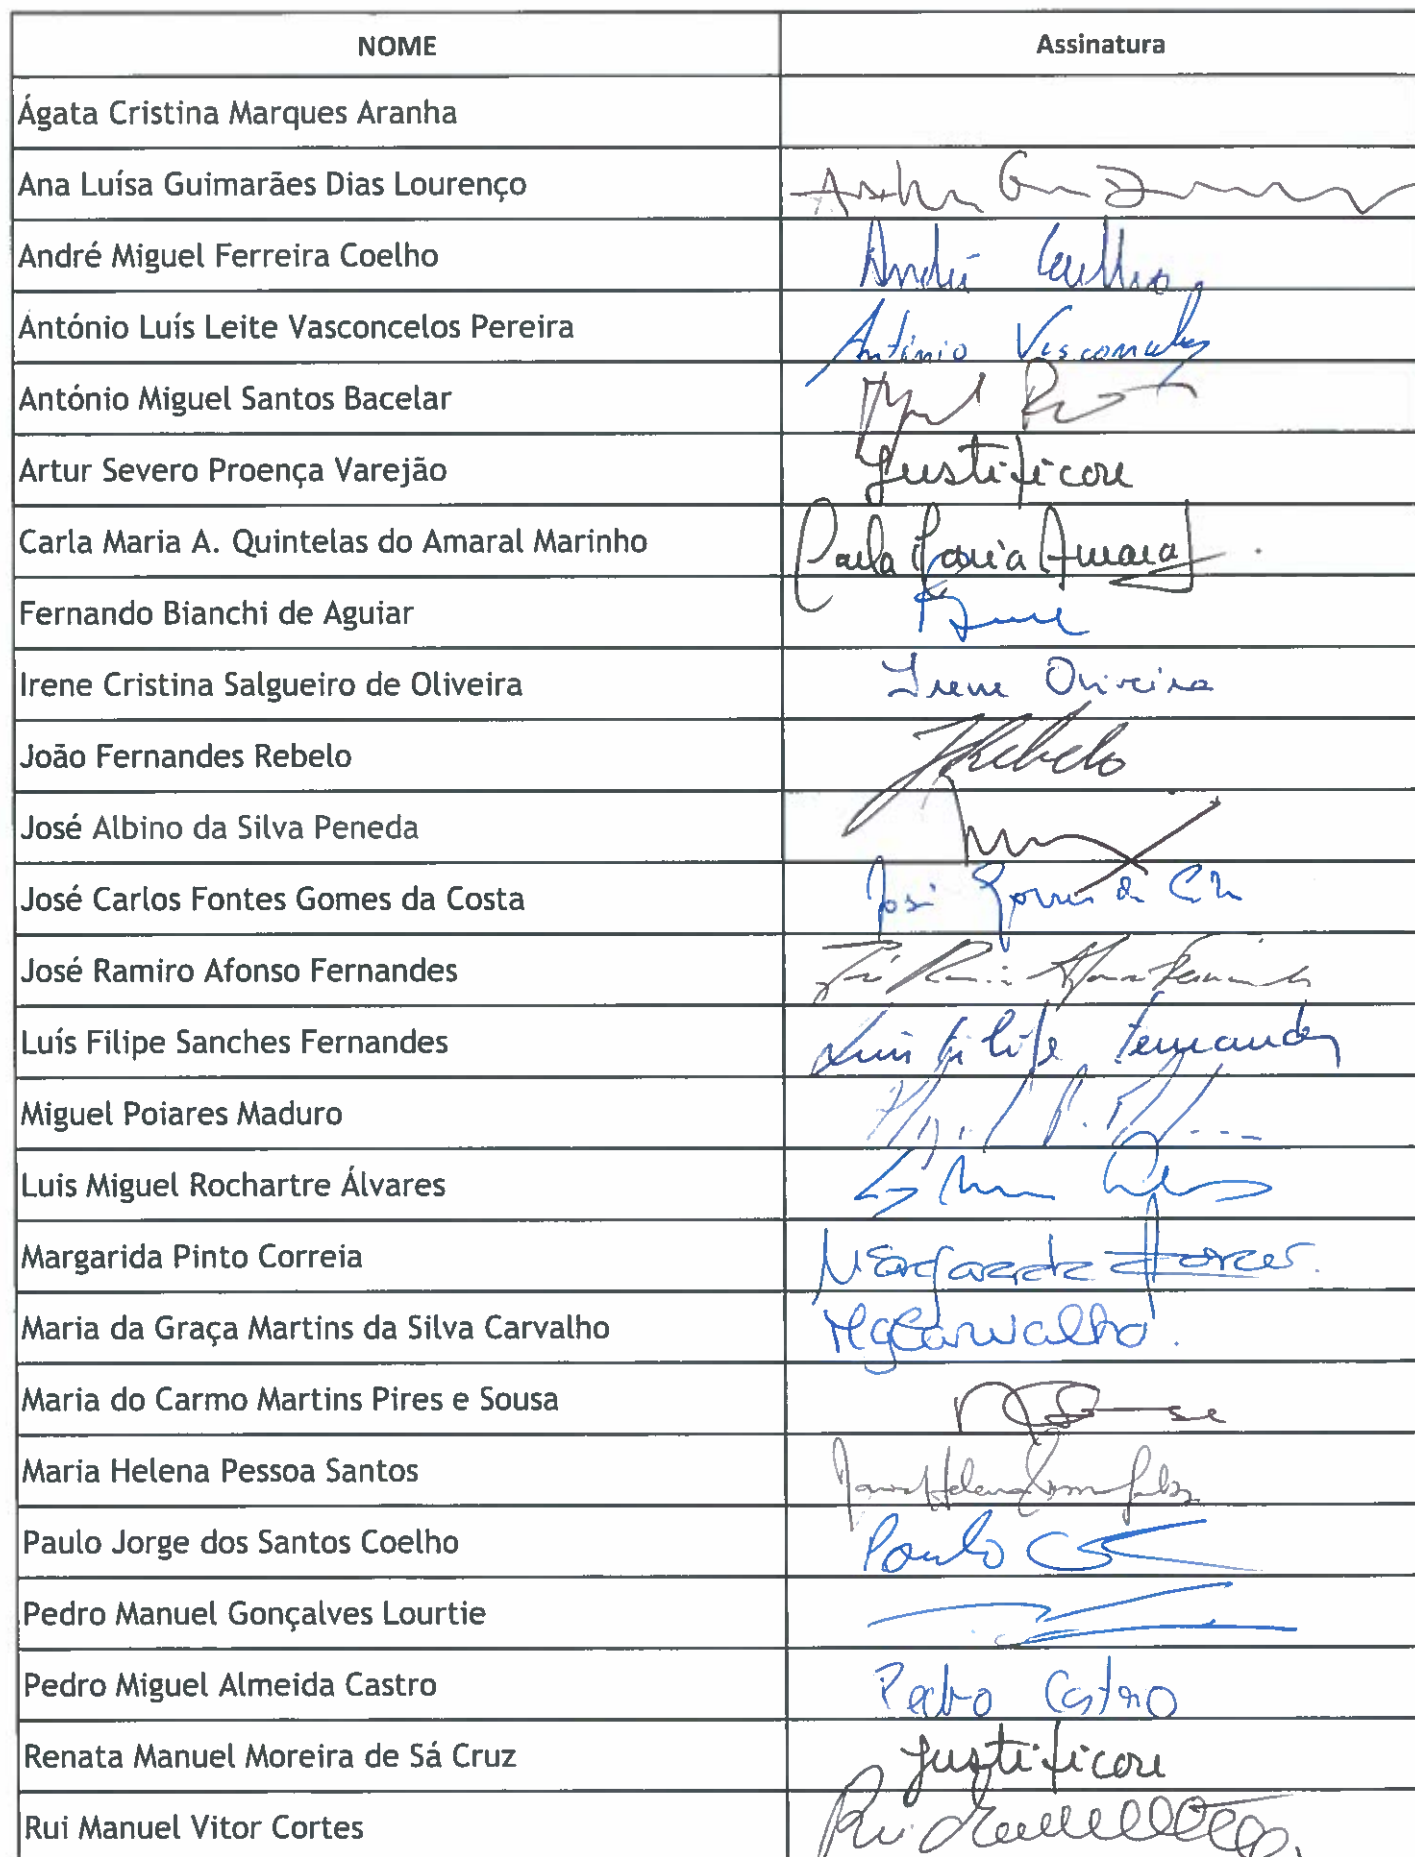 NOME Assinatura
Ágata Cristina Marques Aranha
Ana Luísa Guimarães Dias Lourenço
André Miguel Ferreira Coelho André Coelho
António Luís Leite Vasconcelos Pereira António Vasconcelos
António Miguel Santos Bacelar
Artur Severo Proença Varejão Justificou
Carla Maria A. Quintelas do Amaral Marinho Carla Maria Amaral
Fernando Bianchi de Aguiar
Irene Cristina Salgueiro de Oliveira Irene Oliveira
João Fernandes Rebelo JRebelo
José Albino da Silva Peneda
José Carlos Fontes Gomes da Costa José Gomes da
José Ramiro Afonso Fernandes José Ramiro Afonso Fernandes
Luís Filipe Sanches Fernandes Luís Filipe Fernandes
Miguel Poiares Maduro
Luis Miguel Rochartre Álvares
Margarida Pinto Correia Margarida
Maria da Graça Martins da Silva Carvalho MgCarvalho.
Maria do Carmo Martins Pires e Sousa
Maria Helena Pessoa Santos Maria Helena
Paulo Jorge dos Santos Coelho Paulo
Pedro Manuel Gonçalves Lourtie
Pedro Miguel Almeida Castro Pedro Castro
Renata Manuel Moreira de Sá Cruz Justificou
Rui Manuel Vitor Cortes Rui Manuel